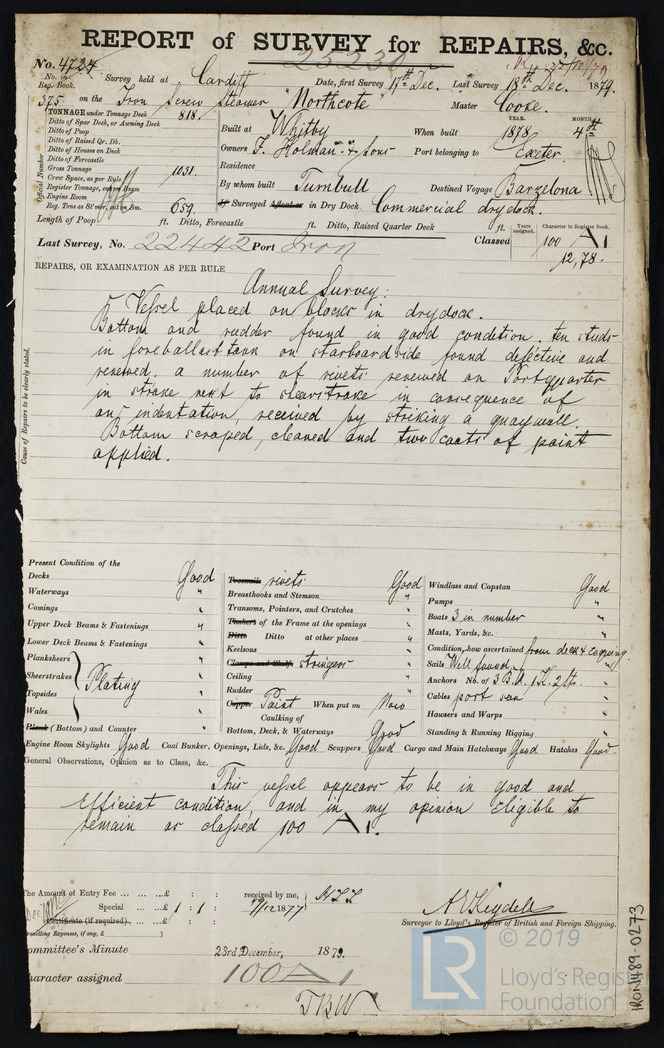 REPORT of SURVEY for REPAIRS, &c.
No. 4724
25230
No. in Reg. Book.
Survey held at Cardiff Date, first Survey 17th Dec. Last Survey 18th Dec. 1879.
375 on the Iron Screw Steamer "Northcote" Master Cooke.
TONNAGE under Tonnage Deck 818.
Ditto of Spar Deck, or Awning Deck
Ditto of Poop
Ditto of Raised Qr. Dk.
Ditto of Houses on Deck
Ditto of Forecastle
Gross Tonnage 1031.
Crew Space, as per Rule
Register Tonnage, cut on Beam
Engine Room
Reg. Tons as St'mer, cut on Bm. 659.
Official Number
Built at Whitby When built YEAR. 1878 MONTH 4th
Owners F. Holman & Sons Port belonging to Exeter.
Residence
By whom built Turnbull Destined Voyage Barzelona
If Surveyed Afloat or in Dry Dock Commercial dry dock.
Length of Poop ft. Ditto, Forecastle ft. Ditto, Raised Quarter Deck ft.
Last Survey, No. 22442 Port Iron Classed Years assigned. Character in Register Book.
100 A1
12,78.
REPAIRS, OR EXAMINATION AS PER RULE
Annual Survey:
Cause of Repairs to be clearly stated.
Vessel placed on blocks in drydock.
Bottom and rudder found in good condition. ten studs
in foreballast tank on starboard side found defective and
renewed. a number of rivets renewed on Port quarter
in strake next to sheerstrake in consequence of
an indentation, received by striking a quaywall.
Bottom scraped, cleaned and two coats of paint
applied.
Present Condition of the
Decks Good
Waterways "
Comings "
Upper Deck Beams & Fastenings "
Lower Deck Beams & Fastenings "
Planksheers
Sheerstrakes
Topsides
Wales
Plating "
Plank (Bottom) and Counter "
Treenails rivets Good
Breasthooks and Stemson "
Transoms, Pointers, and Crutches "
Timbers of the Frame at the openings "
Ditto Ditto at other places "
Keelsons "
Clamps and Shelf stringers "
Ceiling "
Rudder "
Copper Paint When put on Now
Caulking of
Bottom, Deck, & Waterways Good
Windlass and Capstan Good
Pumps "
Boats 3 in number "
Masts, Yards, &c. "
Condition, how ascertained from deck &
Sails Well found "
Anchors No. of 3 B.A. 1 K. 2 St. "
Cables "
Hawsers and Warps "
Standing & Running Rigging "
Engine Room Skylights Good Coal Bunker, Openings, Lids, &c. Good Scuppers Good Cargo and Main Hatchways Good Hatches Good.
General Observations, Opinion as to Class, &c.
This vessel appears to be in good and
Efficient condition, and in my opinion Eligible to
remain as classed 100 A1.
The Amount of Entry Fee ... ... ...£ : : received by me,
Special ... ...£ 1 : 1 :
Certificate (if required)...£ : :
Travelling Expenses, if any, £
Surveyor to Lloyd's Register of British and Foreign Shipping.
Committee's Minute 23rd December, 1879.
Character assigned 100A1
© 2019
LR
Lloyd's Register
Foundation
IRON489-0273